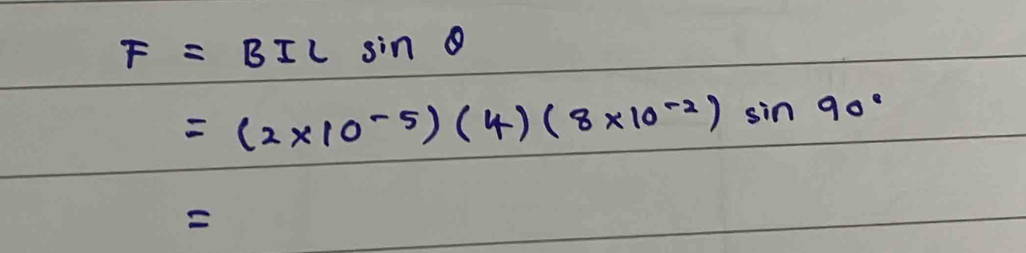 F = BIL sin θ
= (2×10⁻⁵)(4)(8×10⁻²) sin 90°
=